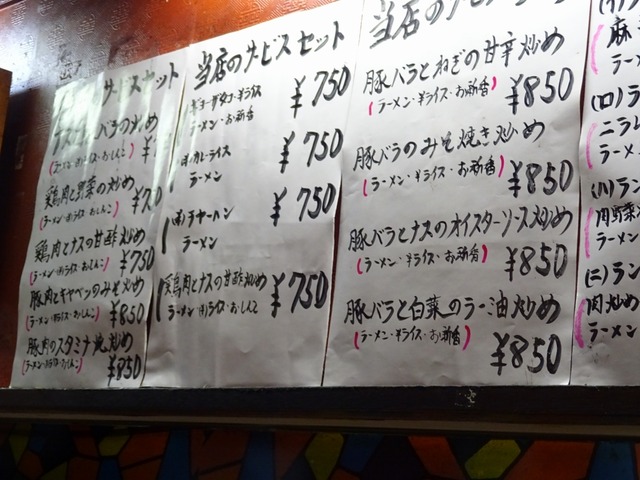 サービスセット
バラの炒め
鶏肉と野菜の炒め
鶏肉とナスの甘酢炒め
(ラーメン・半ライス・おしんこ)
¥750
豚肉とキャベツのみそ炒め
(ラーメン・半ライス・おしんこ)
¥850
豚肉のスタミナ焼炒め
¥850
当店のサービスセット
ギョーザ
ラーメン・お新香
¥750
カレーライス
ラーメン
¥750
チャーハン
ラーメン
¥750
鶏肉とナスの甘酢炒め
¥750
当店の
豚バラとねぎの甘辛炒め
(ラーメン・半ライス・お新香)
¥850
豚バラのみそ焼き炒め
(ラーメン・半ライス・お新香)
¥850
豚バラとナスのオイスターソース炒め
(ラーメン・半ライス・お新香)
¥850
豚バラと白菜のラー油炒め
(ラーメン・半ライス・お新香)
¥850
麻
ラー
(ロ)ラ
ニラレ
ラーメン
(ハ)ラン
肉野菜
ラーメン
(ニ)ラン
肉炒め
ラーメン